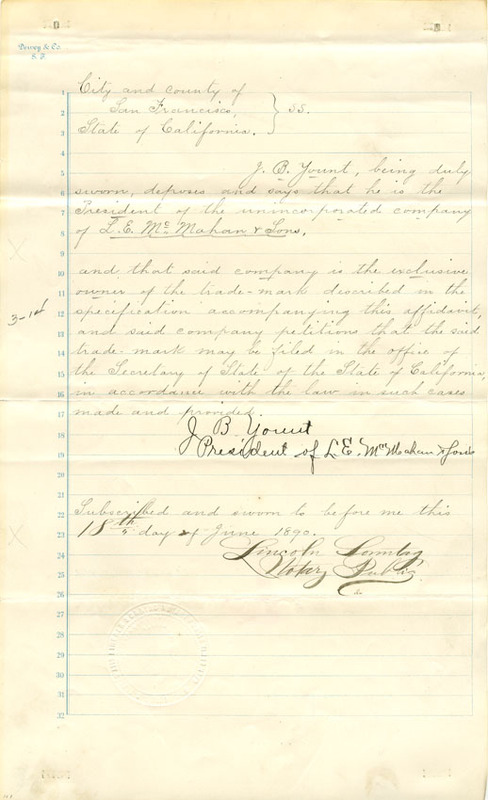 Dewey & Co.
S. F.
City and county of
San Francisco,
State of California. } ss.
J. B. Yount, being duly
sworn, deposes and says that he is the
President of the unincorporated company
of L. E. Mc Mahan & Sons,
and that said company is the exclusive
owner of the trade-mark described in the
specification accompanying this affidavit,
and said company petitions that the said
trade-mark may be filed in the office of
the Secretary of State of the State of California,
in accordance with the law in such cases
made and provided.
J B Yount
President of L E. Mc Mahan & Sons
Subscribed and sworn to before me this
18th day of June 1890.
Lincoln Sonntag
Notary Public
1
2
3
4
5
6
7
8
9
10
11
12
13
14
15
16
17
18
19
20
21
22
23
24
25
26
27
28
29
30
31
32